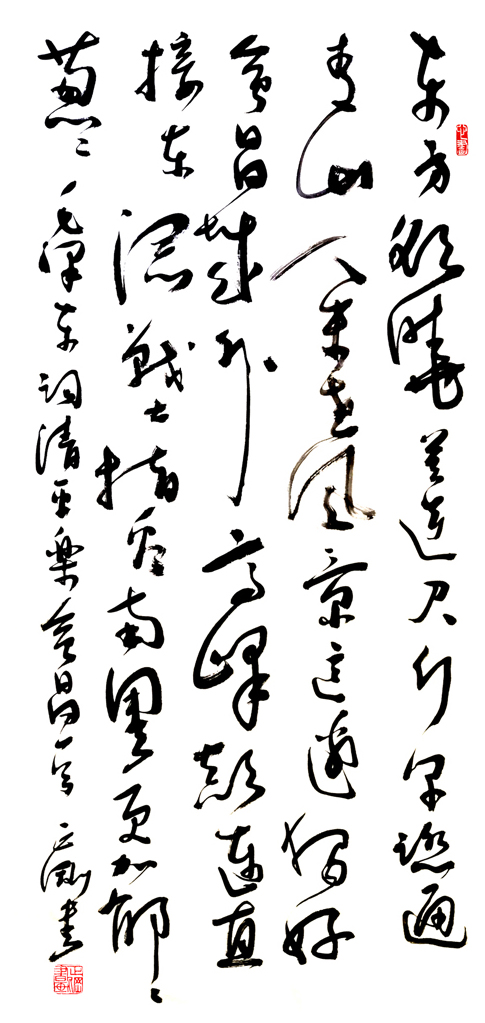 东方欲晓莫道君行早踏遍
青山人未老风景这边独好
会昌城外高峰颠连直
接东溟战士指看南粤更加郁〻
葱〻 毛泽东词清平乐会昌一首 刚书